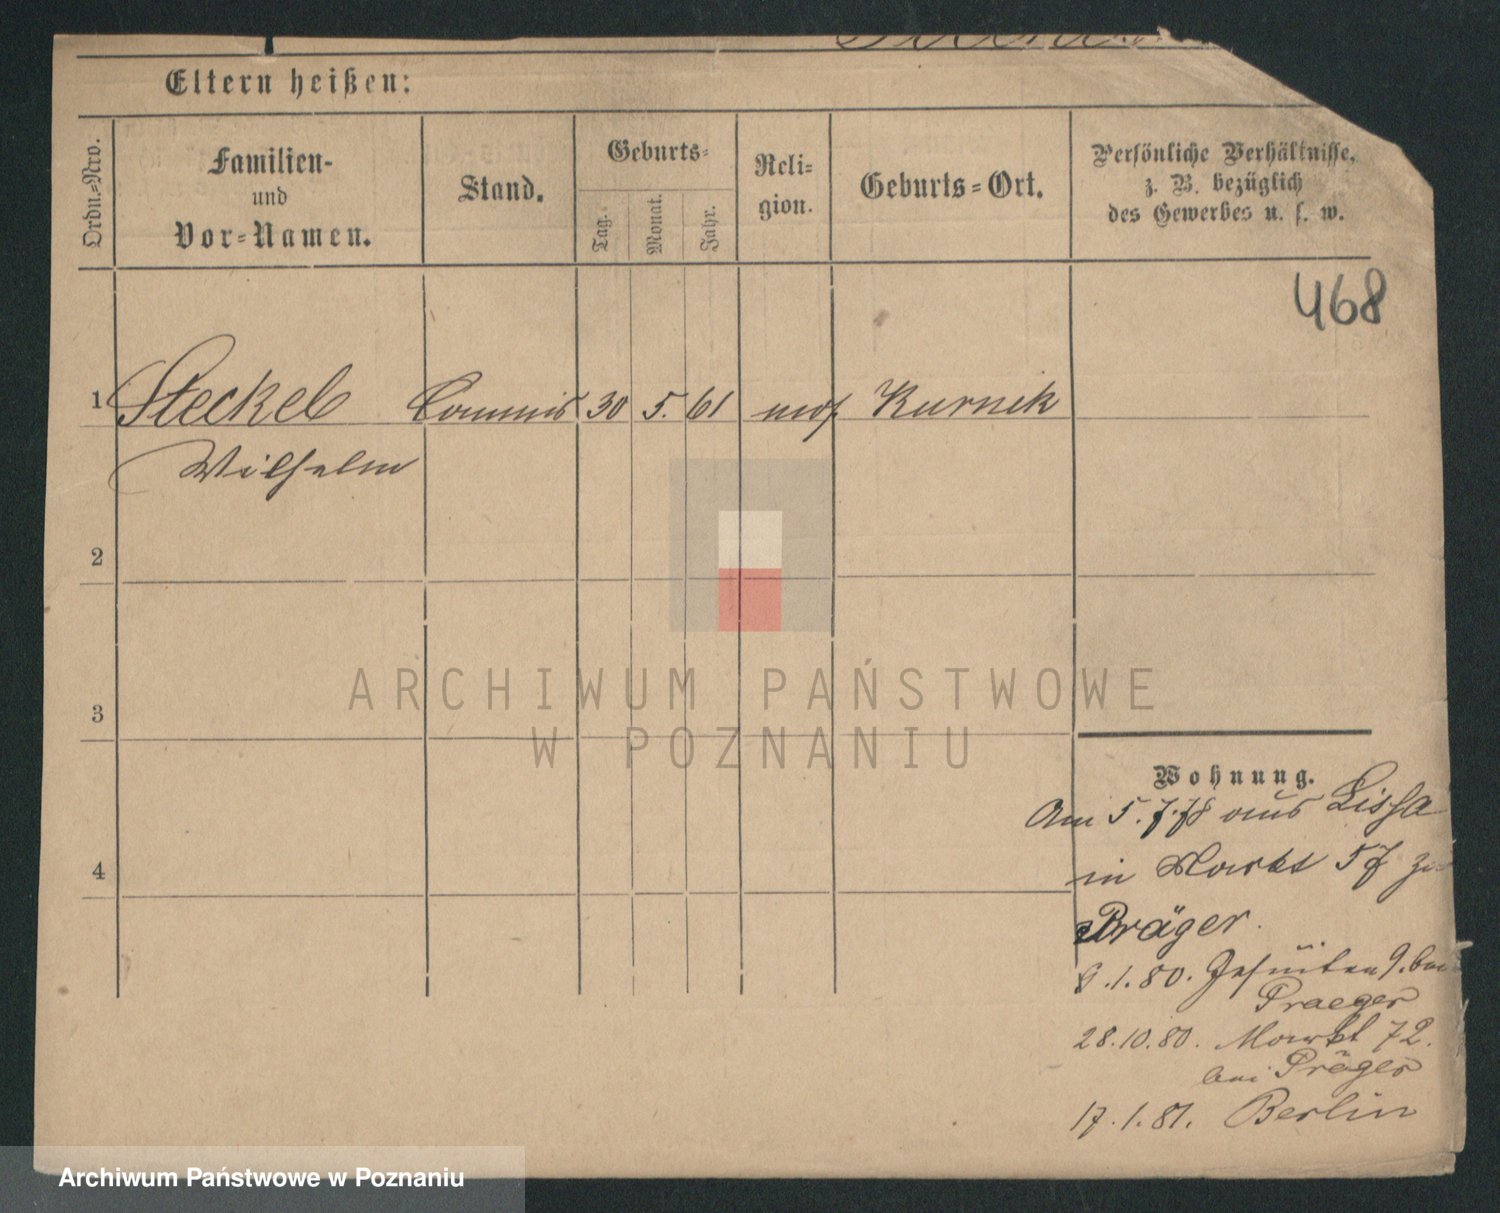 Eltern heißen:
Ordn.-Nro.
Familien-
und
Vor-Namen.
Stand.
Geburts-
Tag.
Monat.
Jahr.
Reli-
gion.
Geburts-Ort.
Persönliche Verhältnisse,
z. B. bezüglich
des Gewerbes u. s. w.
468
1 Steckel Commis 30 5. 61 mos. Kurnik
Wilhelm
2
3
4
ARCHIWUM PAŃSTWOWE
W POZNANIU
Wohnung.
Am 5.7.78 aus Lissa
in Markt 57 zu
Präger.
8.1.80. Jesuiten 9. bei
Praeger
28.10.80. Markt 72.
bei Präger
17.1.81. Berlin
Archiwum Państwowe w Poznaniu